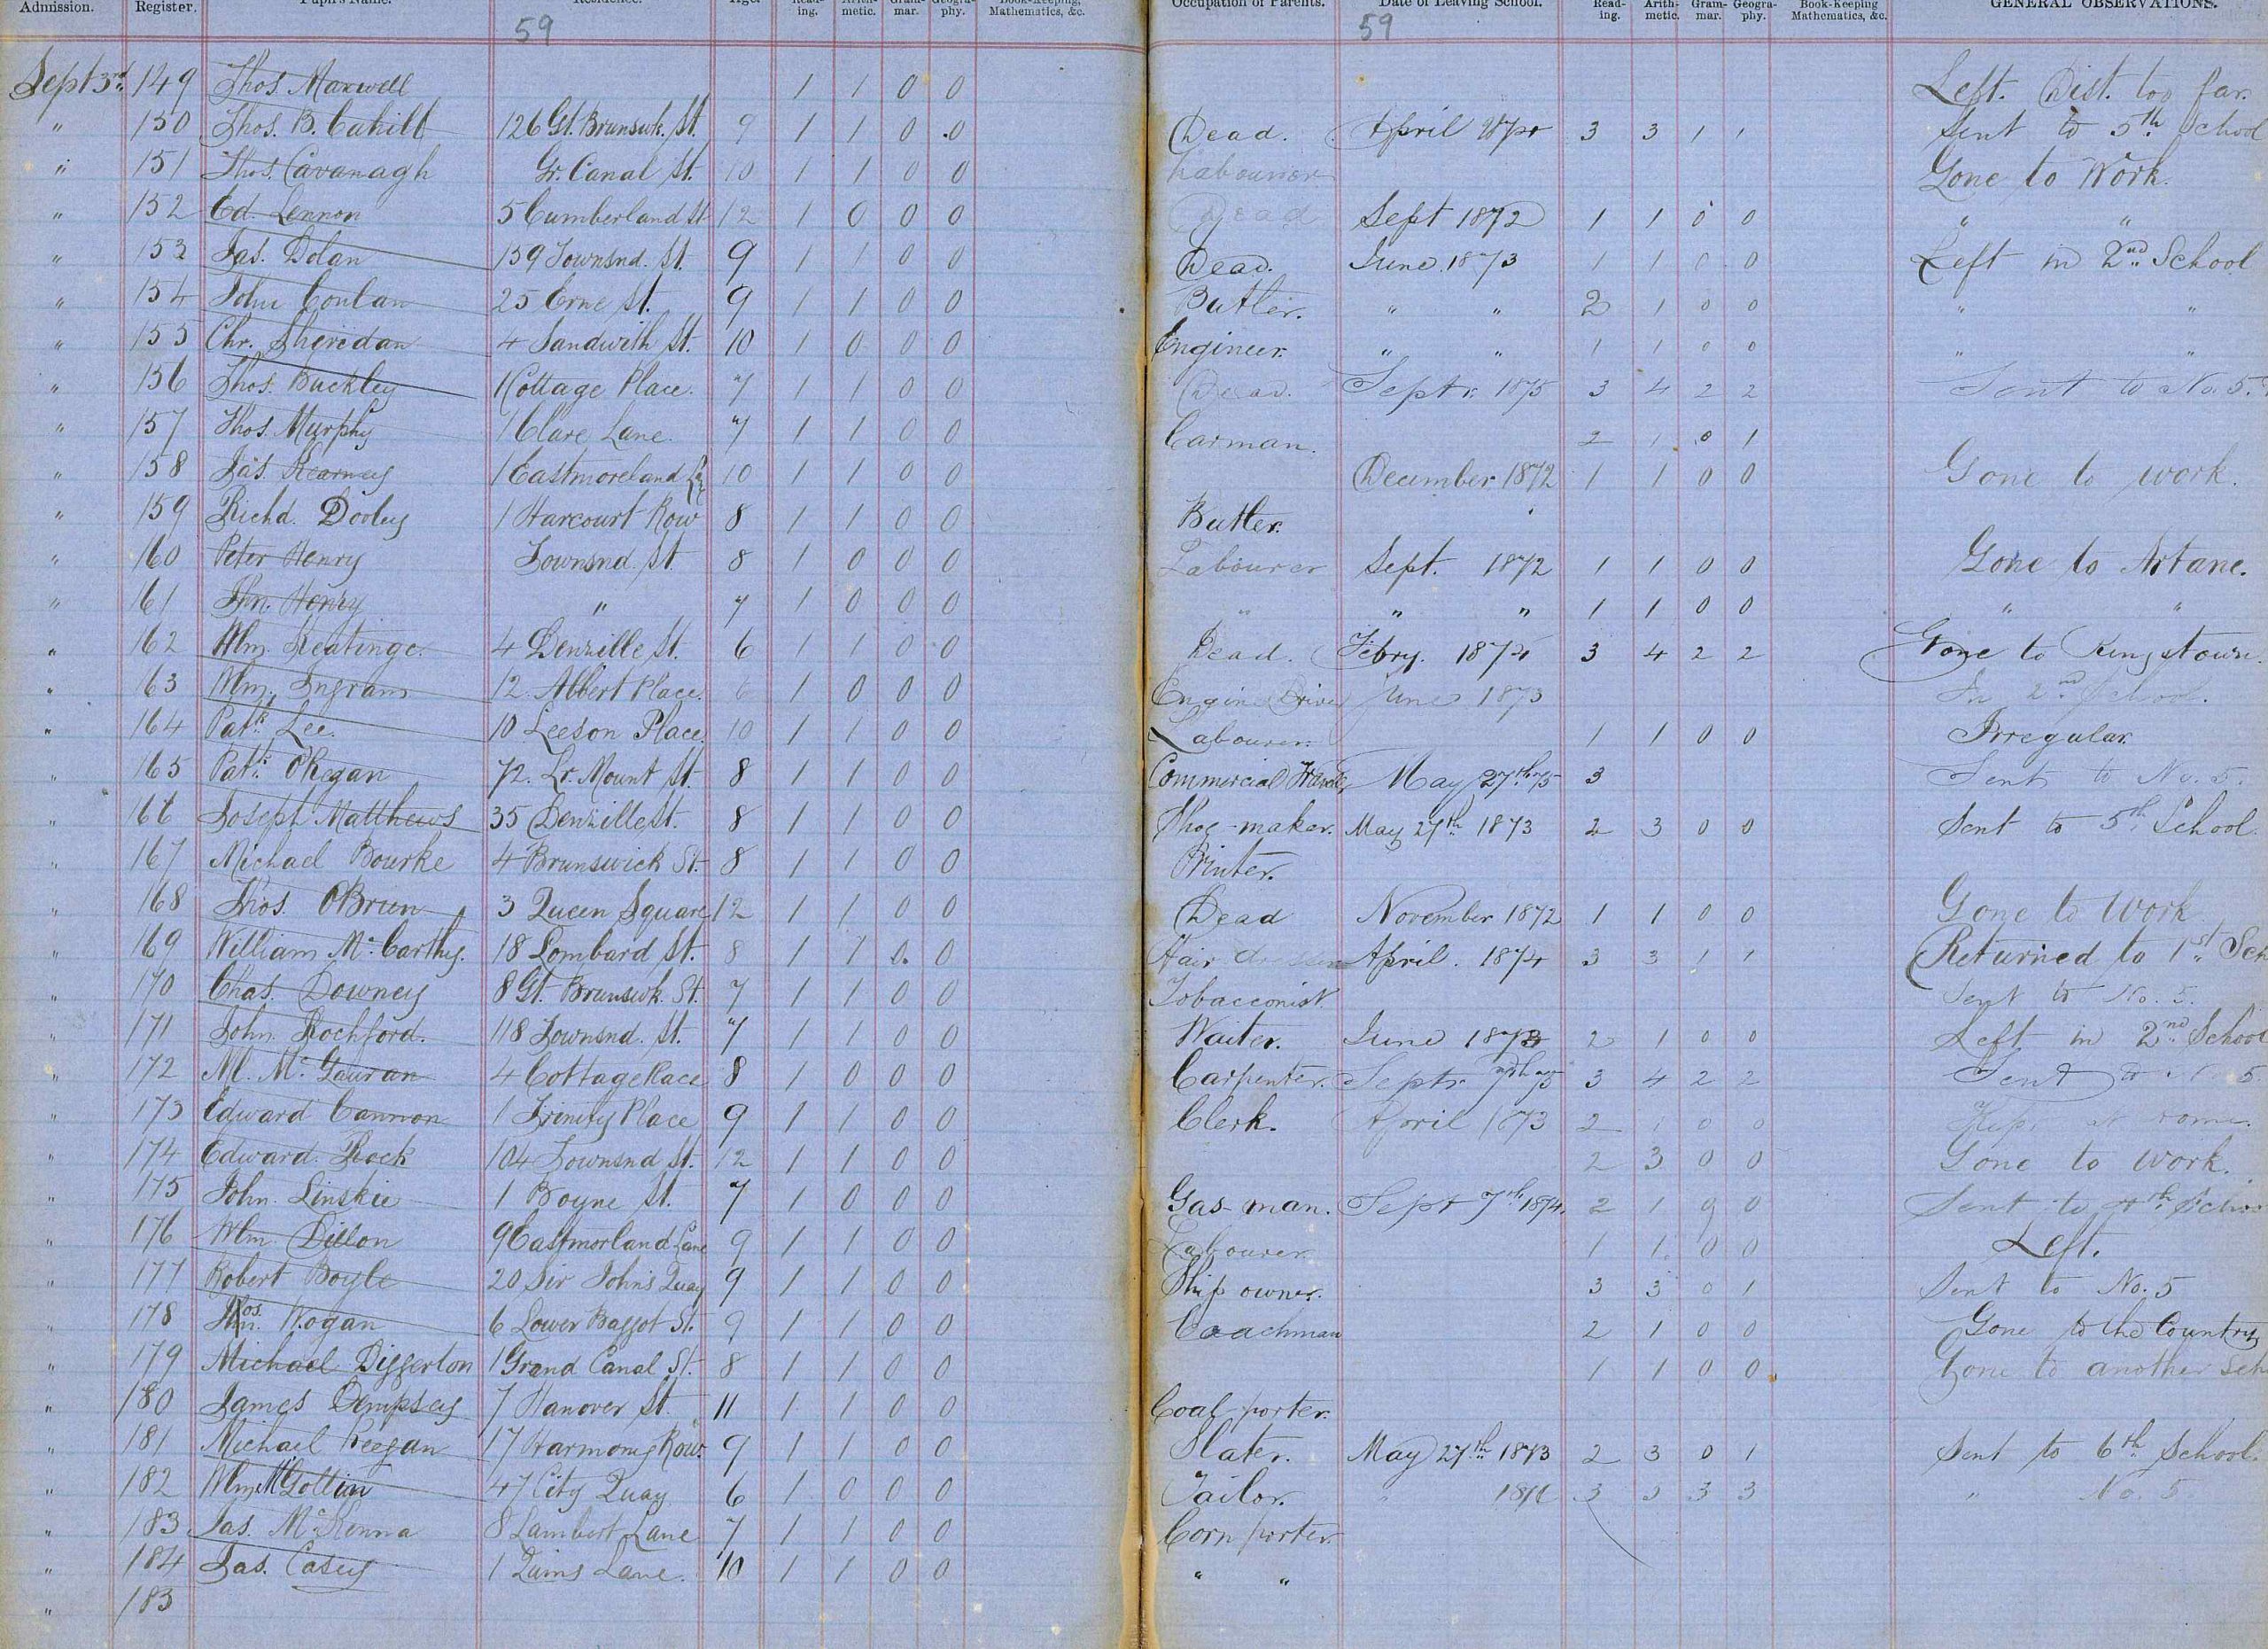 Admission. Register. Pupil's Name. Residence. Age. Read-ing. Arith-metic. Gram-mar. Geogra-phy. Book-Keeping, Mathematics, &c. Occupation of Parents. Date of Leaving School. Read-ing. Arith-metic. Gram-mar. Geogra-phy. Book-Keeping Mathematics, &c. GENERAL OBSERVATIONS.
59 59
Sept 3rd 149 Thos. Maxwell 1 1 0 0 Left. Dist. too far.
" 150 Thos. B. Cahill 126 Gt. Brunswk. St. 9 1 1 0 0 Dead. April 3 3 1 1 Sent to 5th School
" 151 Thos. Cavanagh Gr. Canal St. 10 1 1 0 0 Labourer Gone to Work.
" 152 Ed. Lennon 5 Cumberland St 12 1 0 0 0 Dead Sept 1872 1 1 0 0 " "
" 153 Jas. Dolan 159 Townsnd. St. 9 1 1 0 0 Dead. June 1873 1 1 0 0 Left in 2nd School
" 154 John Conlan 25 Erne St. 9 1 1 0 0 Butler. " " 2 1 0 0 " "
" 155 Chr. Sheridan 4 Sandwith St. 10 1 0 0 0 Engineer. " " 1 1 0 0 " "
" 156 Thos. Buckley 1 Cottage Place. 7 1 1 0 0 Dead. Septr. 1875 3 4 2 2 Sent to No. 5.
" 157 Thos. Murphy 1 Clare Lane. 7 1 1 0 0 Carman. 2 1 0 1
" 158 Jas. Kearney 1 Eastmoreland 10 1 1 0 0 December 1872 1 1 0 0 Gone to work.
" 159 Richd. Dooley 1 Harcourt Row 8 1 1 0 0 Butler.
" 160 Peter Henry Townsnd. St 8 1 0 0 0 Labourer Sept. 1872 1 1 0 0 Gone to Artane.
" 161 Jhn. Henry " 7 1 0 0 0 " " " 1 1 0 0 " "
" 162 Wm. Keatinge. 4 Denzille St. 6 1 1 0 0 Dead. Febry. 1874 3 4 2 2 Gone to Kingstown.
" 163 Wm. Ingram 12 Albert Place. 6 1 0 0 0 Engine Driver June 1873 In 2nd School.
" 164 Patk. Lee. 10 Leeson Place. 10 1 1 0 0 Labourer. 1 1 0 0 Irregular.
" 165 Patk. O'Regan 72. Lr. Mount St. 8 1 1 0 0 Commercial May 27th 75 3 Sent to No. 5.
" 166 Joseph Matthews 35 Denzille St. 8 1 1 0 0 Shoe-maker. May 27th 1873 2 3 0 0 Sent to 5th School
" 167 Michael Bourke 4 Brunswick St. 8 1 1 0 0 Printer.
" 168 Thos. OBrien 3 Queen Square 12 1 1 0 0 Dead November 1872 1 1 0 0 Gone to Work
" 169 William McCarthy. 18 Lombard St. 8 1 1 0 0 Hair dresser April. 1874 3 3 1 1 Returned to 1st Sch
" 170 Chas. Downey 8 Gt. Brunswk. St. 7 1 1 0 0 Tobacconist. Sent to No. 5.
" 171 John Rochford. 118 Townsnd. St. 7 1 1 0 0 Waiter. June 1873 2 1 0 0 Left in 2nd School
" 172 M. McGauran 4 Cottage Place 8 1 0 0 0 Carpenter. Septr. 7th 75 3 4 2 2 Sent to 5
" 173 Edward Cannon 1 Trinity Place 9 1 1 0 0 Clerk. April 1873 2 1 0 0 Kept at home.
" 174 Edward Rock 104 Townsnd St. 12 1 1 0 0 2 3 0 0 Gone to work.
" 175 John Linskie 1 Boyne St. 7 1 0 0 0 Gas-man. Sept 7th 1874. 2 1 0 0 Sent to 4th School
" 176 Wm. Dillon 9 Eastmorland Lane 9 1 1 0 0 Labourer 1 1 0 0 Left.
" 177 Robert Boyle 20 Sir John's Quay 9 1 1 0 0 Ship owner. 3 3 0 1 Sent to No. 5
" 178 Thos. Wogan 6 Lower Baggot St. 9 1 1 0 0 Coachman 2 1 0 0 Gone to the Country
" 179 Michael Differton 1 Grand Canal St. 8 1 1 0 0 1 1 0 0 Gone to another Sch
" 180 James Dempsey 7 Hanover St. 11 1 1 0 0 Coal porter.
" 181 Michael Keegan 17 Harmony Row. 9 1 1 0 0 Slater. May 27th 1873 2 3 0 1 Sent to 6th School.
" 182 Wm. 47 City Quay 6 1 0 0 0 Tailor. " 3 3 3 3 " No. 5.
" 183 Jas. McKenna 8 Lambert Lane 7 1 1 0 0 Corn porter.
" 184 Jas. Casey 1 Quins Lane. 10 1 1 0 0 " "
" 185